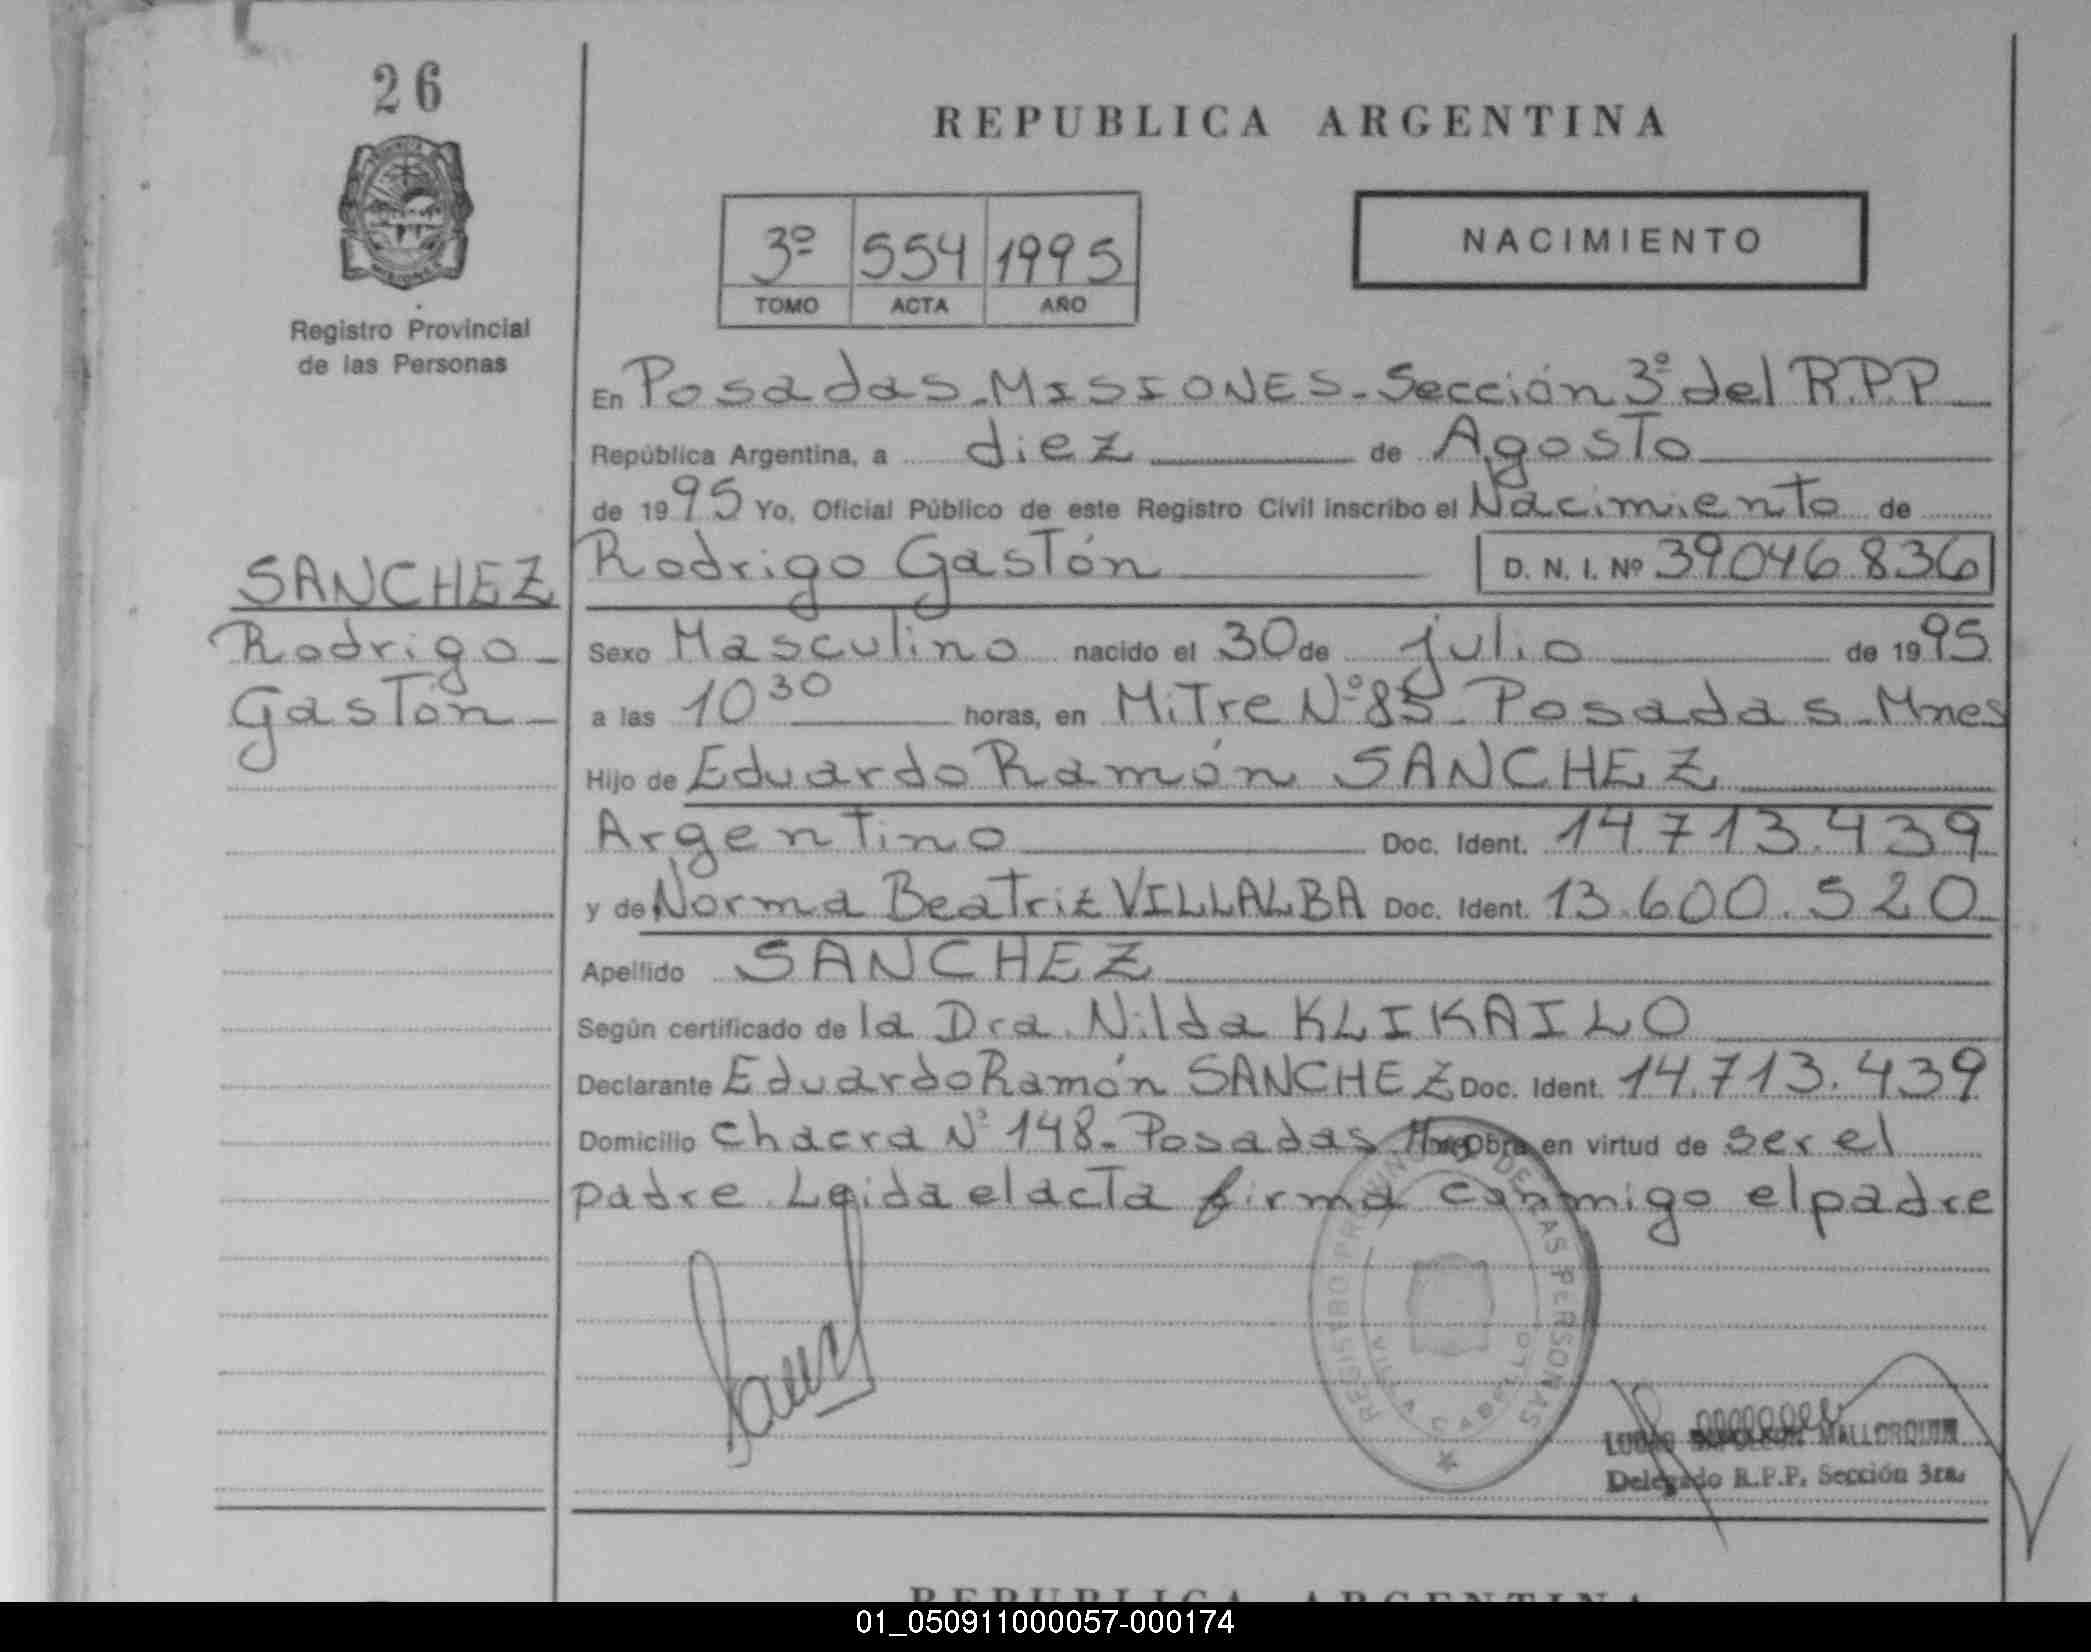 26
Registro Provincial
de las Personas
SANCHEZ
Rodrigo
Gastón
REPUBLICA ARGENTINA
3º 554 1995
TOMO ACTA AÑO
NACIMIENTO
En Posadas-MISIONES-Sección 3º del R.P.P
República Argentina, a diez de Agosto
de 1995 Yo, Oficial Público de este Registro Civil inscribo el Nacimiento de
Rodrigo Gastón D. N. I. Nº 39046836
Sexo Masculino nacido el 30 de julio de 1995
a las 10 30 horas, en Mitre Nº 85-Posadas-Mnes
Hijo de Eduardo Ramón SANCHEZ
Argentino Doc. Ident. 14.713.439
y de Norma Beatriz VILLALBA Doc. Ident. 13.600.520
Apellido SANCHEZ
Según certificado de la Dra. Nilda KLIKAILO
Declarante Eduardo Ramón SANCHEZ Doc. Ident. 14.713.439
Domicilio Chacra Nº 148-Posadas Obra en virtud de ser el
padre Leida el acta firma conmigo el padre
REGISTRO PROVINCIAL DE LAS PERSONAS
VILLA CABELLO
MALLORQUIN
Delegado R.P.P. Sección 3ra.
REPUBLICA ARGENTINA
01_050911000057-000174